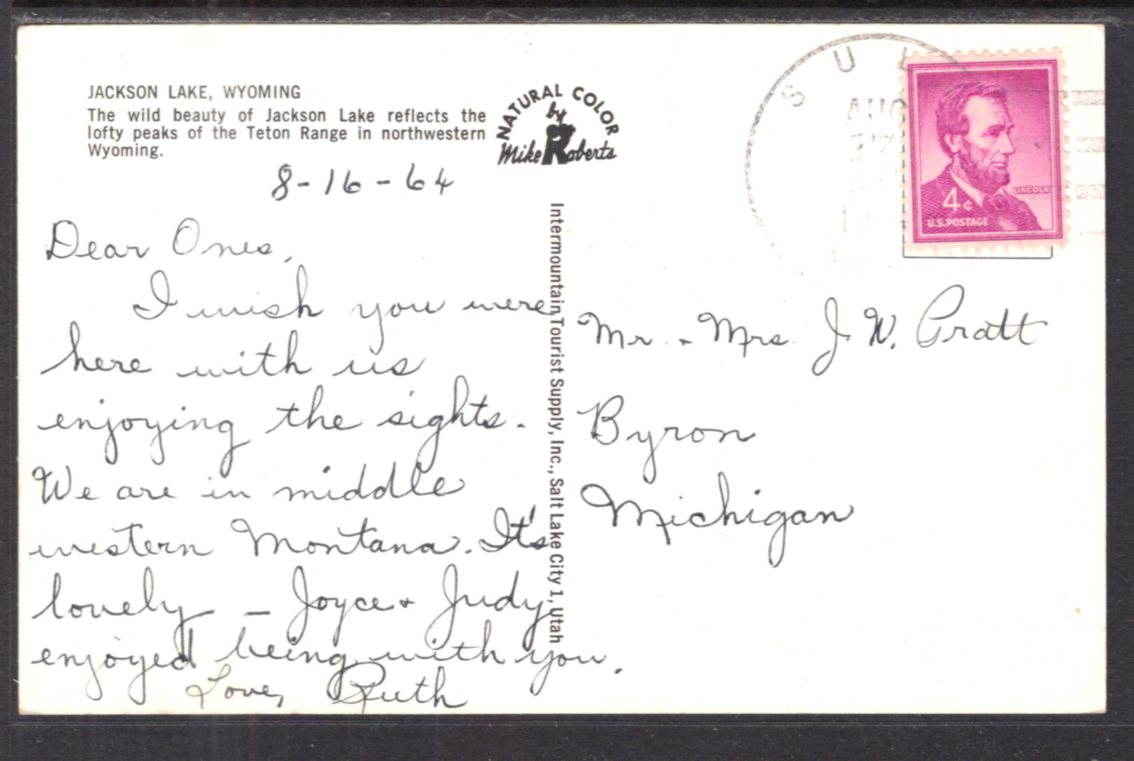 JACKSON LAKE, WYOMING
The wild beauty of Jackson Lake reflects the
lofty peaks of the Teton Range in northwestern
Wyoming.
NATURAL COLOR
by
Mike Roberts
8-16-64
Dear Ones,
I wish you were
here with us
enjoying the sights.
We are in middle
western Montana. It's
lovely - Joyce + Judy
enjoyed being with you.
Love, Ruth
Intermountain Tourist Supply, Inc., Salt Lake City 1, Utah
S U L
AUG
LINCOLN
4¢
U.S. POSTAGE
Mr. + Mrs. J. W. Pratt
Byron
Michigan